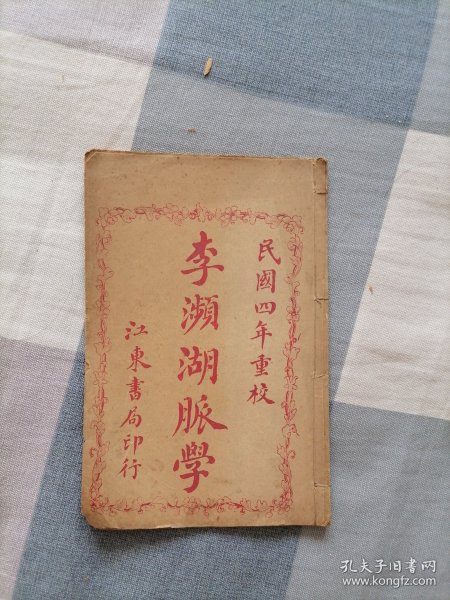 民國四年重校
李瀕湖脈學
江東書局印行
孔夫子旧书网
www.kongfz.com